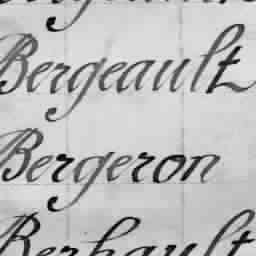 Bergeault
Bergeron
Berhault